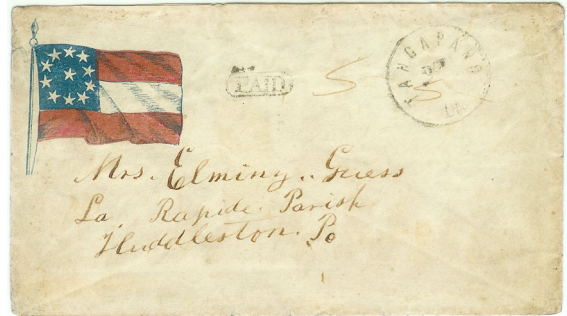 PAID
TANGAPAHO
LA
5
Mrs. Elming.. Guess
La, Rapide. Parish
Huddleston. Po